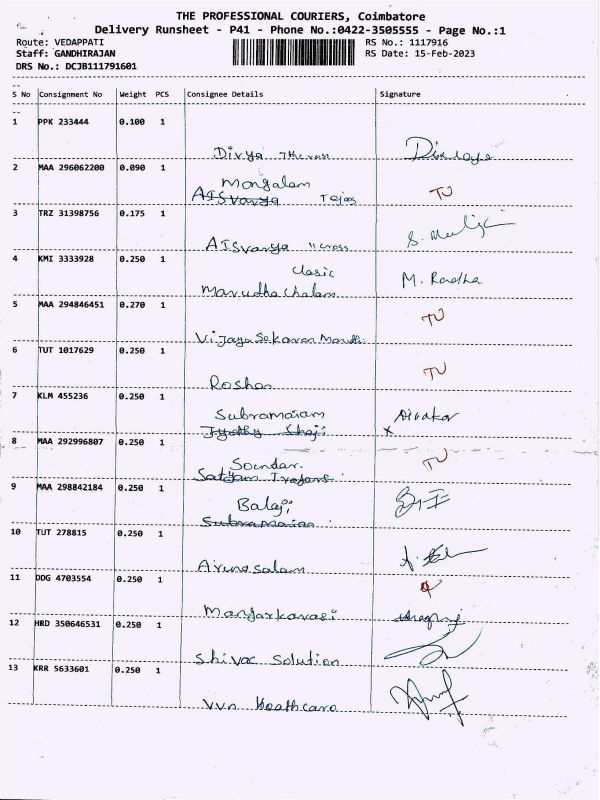 THE PROFESSIONAL COURIERS, Coimbatore
Delivery Runsheet - P41 - Phone No.:0422-3505555 - Page No.:1
Route: VEDAPPATI RS No.: 1117916
Staff: GANDHIRAJAN RS Date: 15-Feb-2023
DRS No.: DCJB111791601
S No Consignment No Weight PCS Consignee Details Signature
1 PPK 233444 0.100 1
Divya
2 MAA 296062200 0.090 1
Mongalam
AISvarya Tejas TU
3 TRZ 31398756 0.175 1
AISvarya
4 KMI 3333928 0.250 1
Clasic
Marudhachalam M. Radha
5 MAA 294846451 0.270 1
TU
Vijaya Sekaran
6 TUT 1017629 0.250 1
TU
Roshan
7 KLM 455236 0.250 1
Subramaiam Divakar
Jyothy Shaji x
8 MAA 292996807 0.250 1
Soundar TU
Satyam
9 MAA 298842184 0.250 1
Balaji
Subramaian
10 TUT 278815 0.250 1
Arunasalam
11 DDG 4703554 0.250 1
Mangarkavasi
12 HRD 350646531 0.250 1
Shivac Solution
13 KRR 5633601 0.250 1
VVn Healthcare